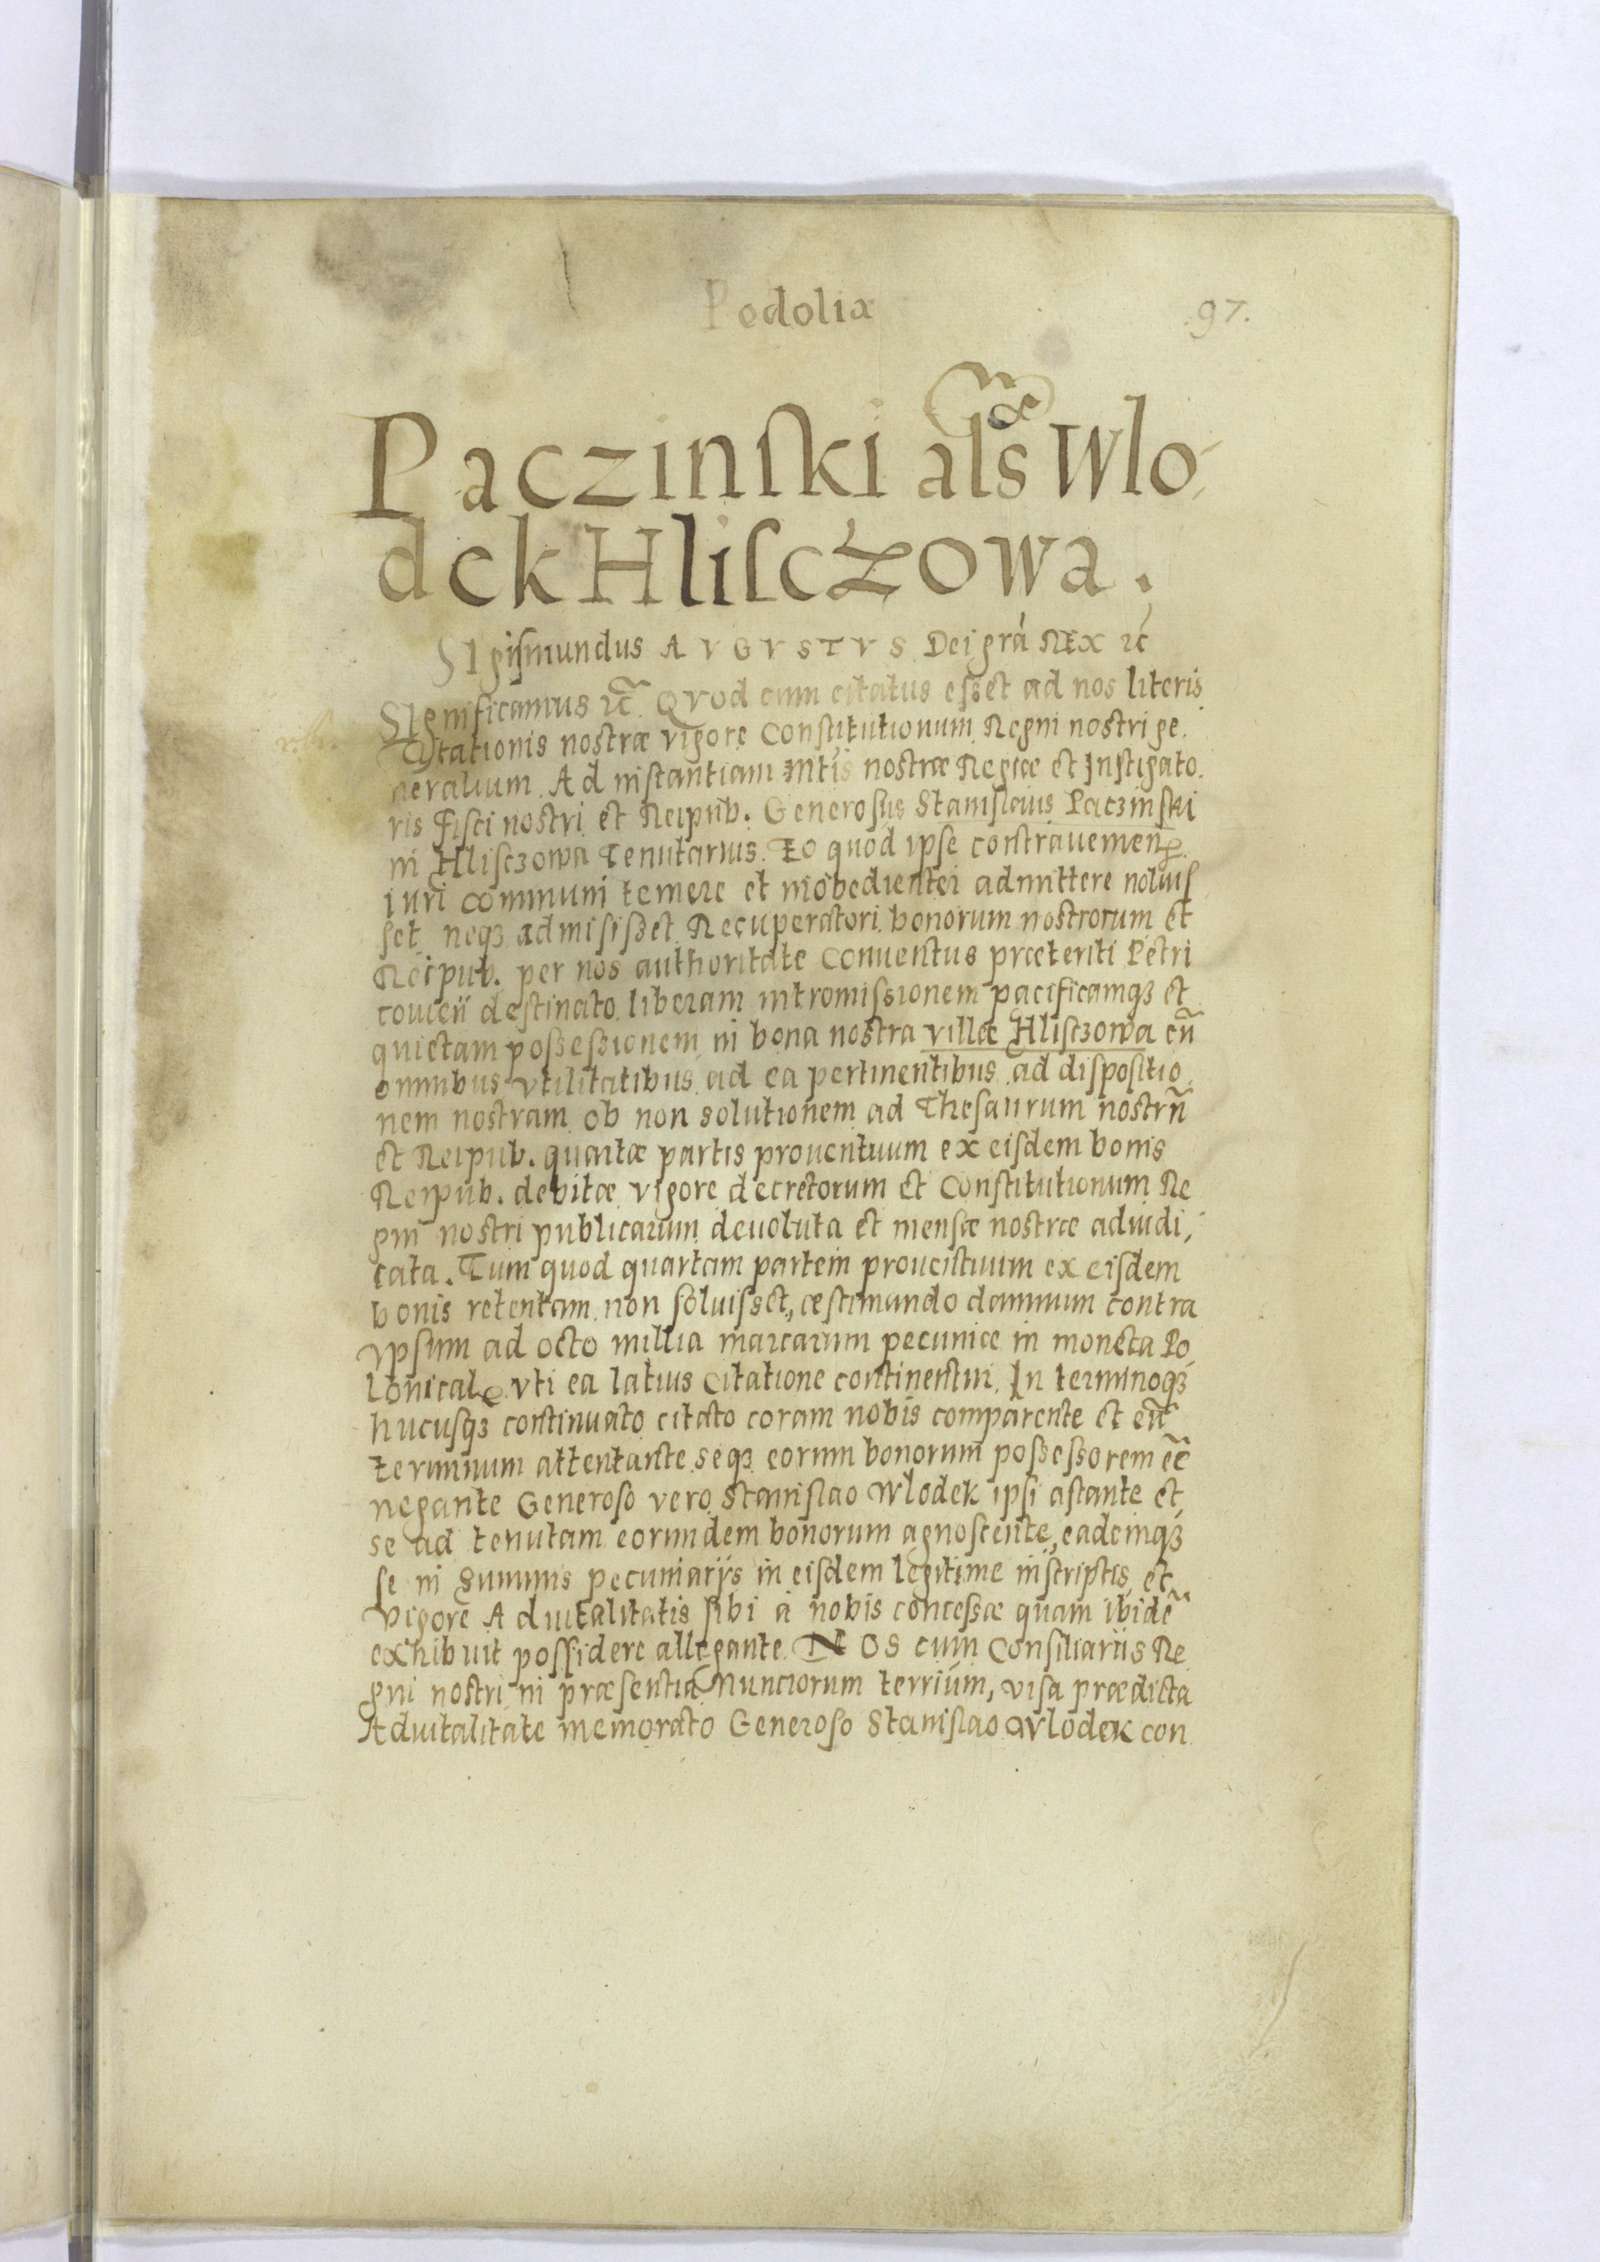 Podoliæ
97.
Paczinſki als Wlo
dek Hliſczowa.
SIgiſmundus AVGVSTVS Dei grá REx ꝛc̃
SIgnificamus ꝛc̃. QVod cum citatus eſzet ad nos literis
Citationis nostræ vigore Constitutionum Regni nostri ge.
neralium. Ad instantiam Mtis nostræ Regiæ et Instigato.
ris Fisci nostri et Reipub. Generosus Stanislaus Paczinski
in Hlisczowa Tenutarius. Eo quod ipse contraueniendo
iuri communi temere et inobedienter admittere noluiſ
ſet neqꝫ admiſiſzet Recuperatori bonorum nostrorum et
Reipub. per nos authoritate Conuentus præteriti Petri
couien destinato liberam intromiſsionem pacificamqꝫ et
quietam poſzeſzionem in bona nostra villæ Hlisczowa cũ
omnibus vtilitatibus ad ea pertinentibus ad dispositio
nem nostram ob non solutionem ad Thesaurum nostrũ
et Reipub. quartæ partis prouentuum ex eisdem bonis
Reipub. debitæ vigore decretorum et Constitutionum Re
gni nostri publicarum deuoluta et mensæ nostræ adiudi,
cata. Tum quod quartam partem prouentuum ex eisdem
bonis retentam non ſoluiſset, æstimando damnum contra
ypsum ad octo millia marcarum pecuniæ in moneta Po
lonicalę vti ea latius Citatione continentur. In terminoqꝫ
hucusqꝫ continuato citato coram nobis comparente et eũ
terminum attentante seqꝫ eorum bonorum poſzeſzorem eẽ
negante Generoso vero Stanislao Wlodek ipsi astante et
se ad tenutam eorundem bonorum agnoscente, eademqꝫ
se in summis pecuniarijs in eisdem legitime inscriptis et
vigore Aduitalitatis ſibi à nobis conceſzæ quam ibidẽ
exhibuit poſſidere allegante. NOS cum Consiliariis Re
gni nostri in præsentia Nunciorum terrium, visa prædicta
Aduitalitate memorato Generoso Stanislao Wlodek con